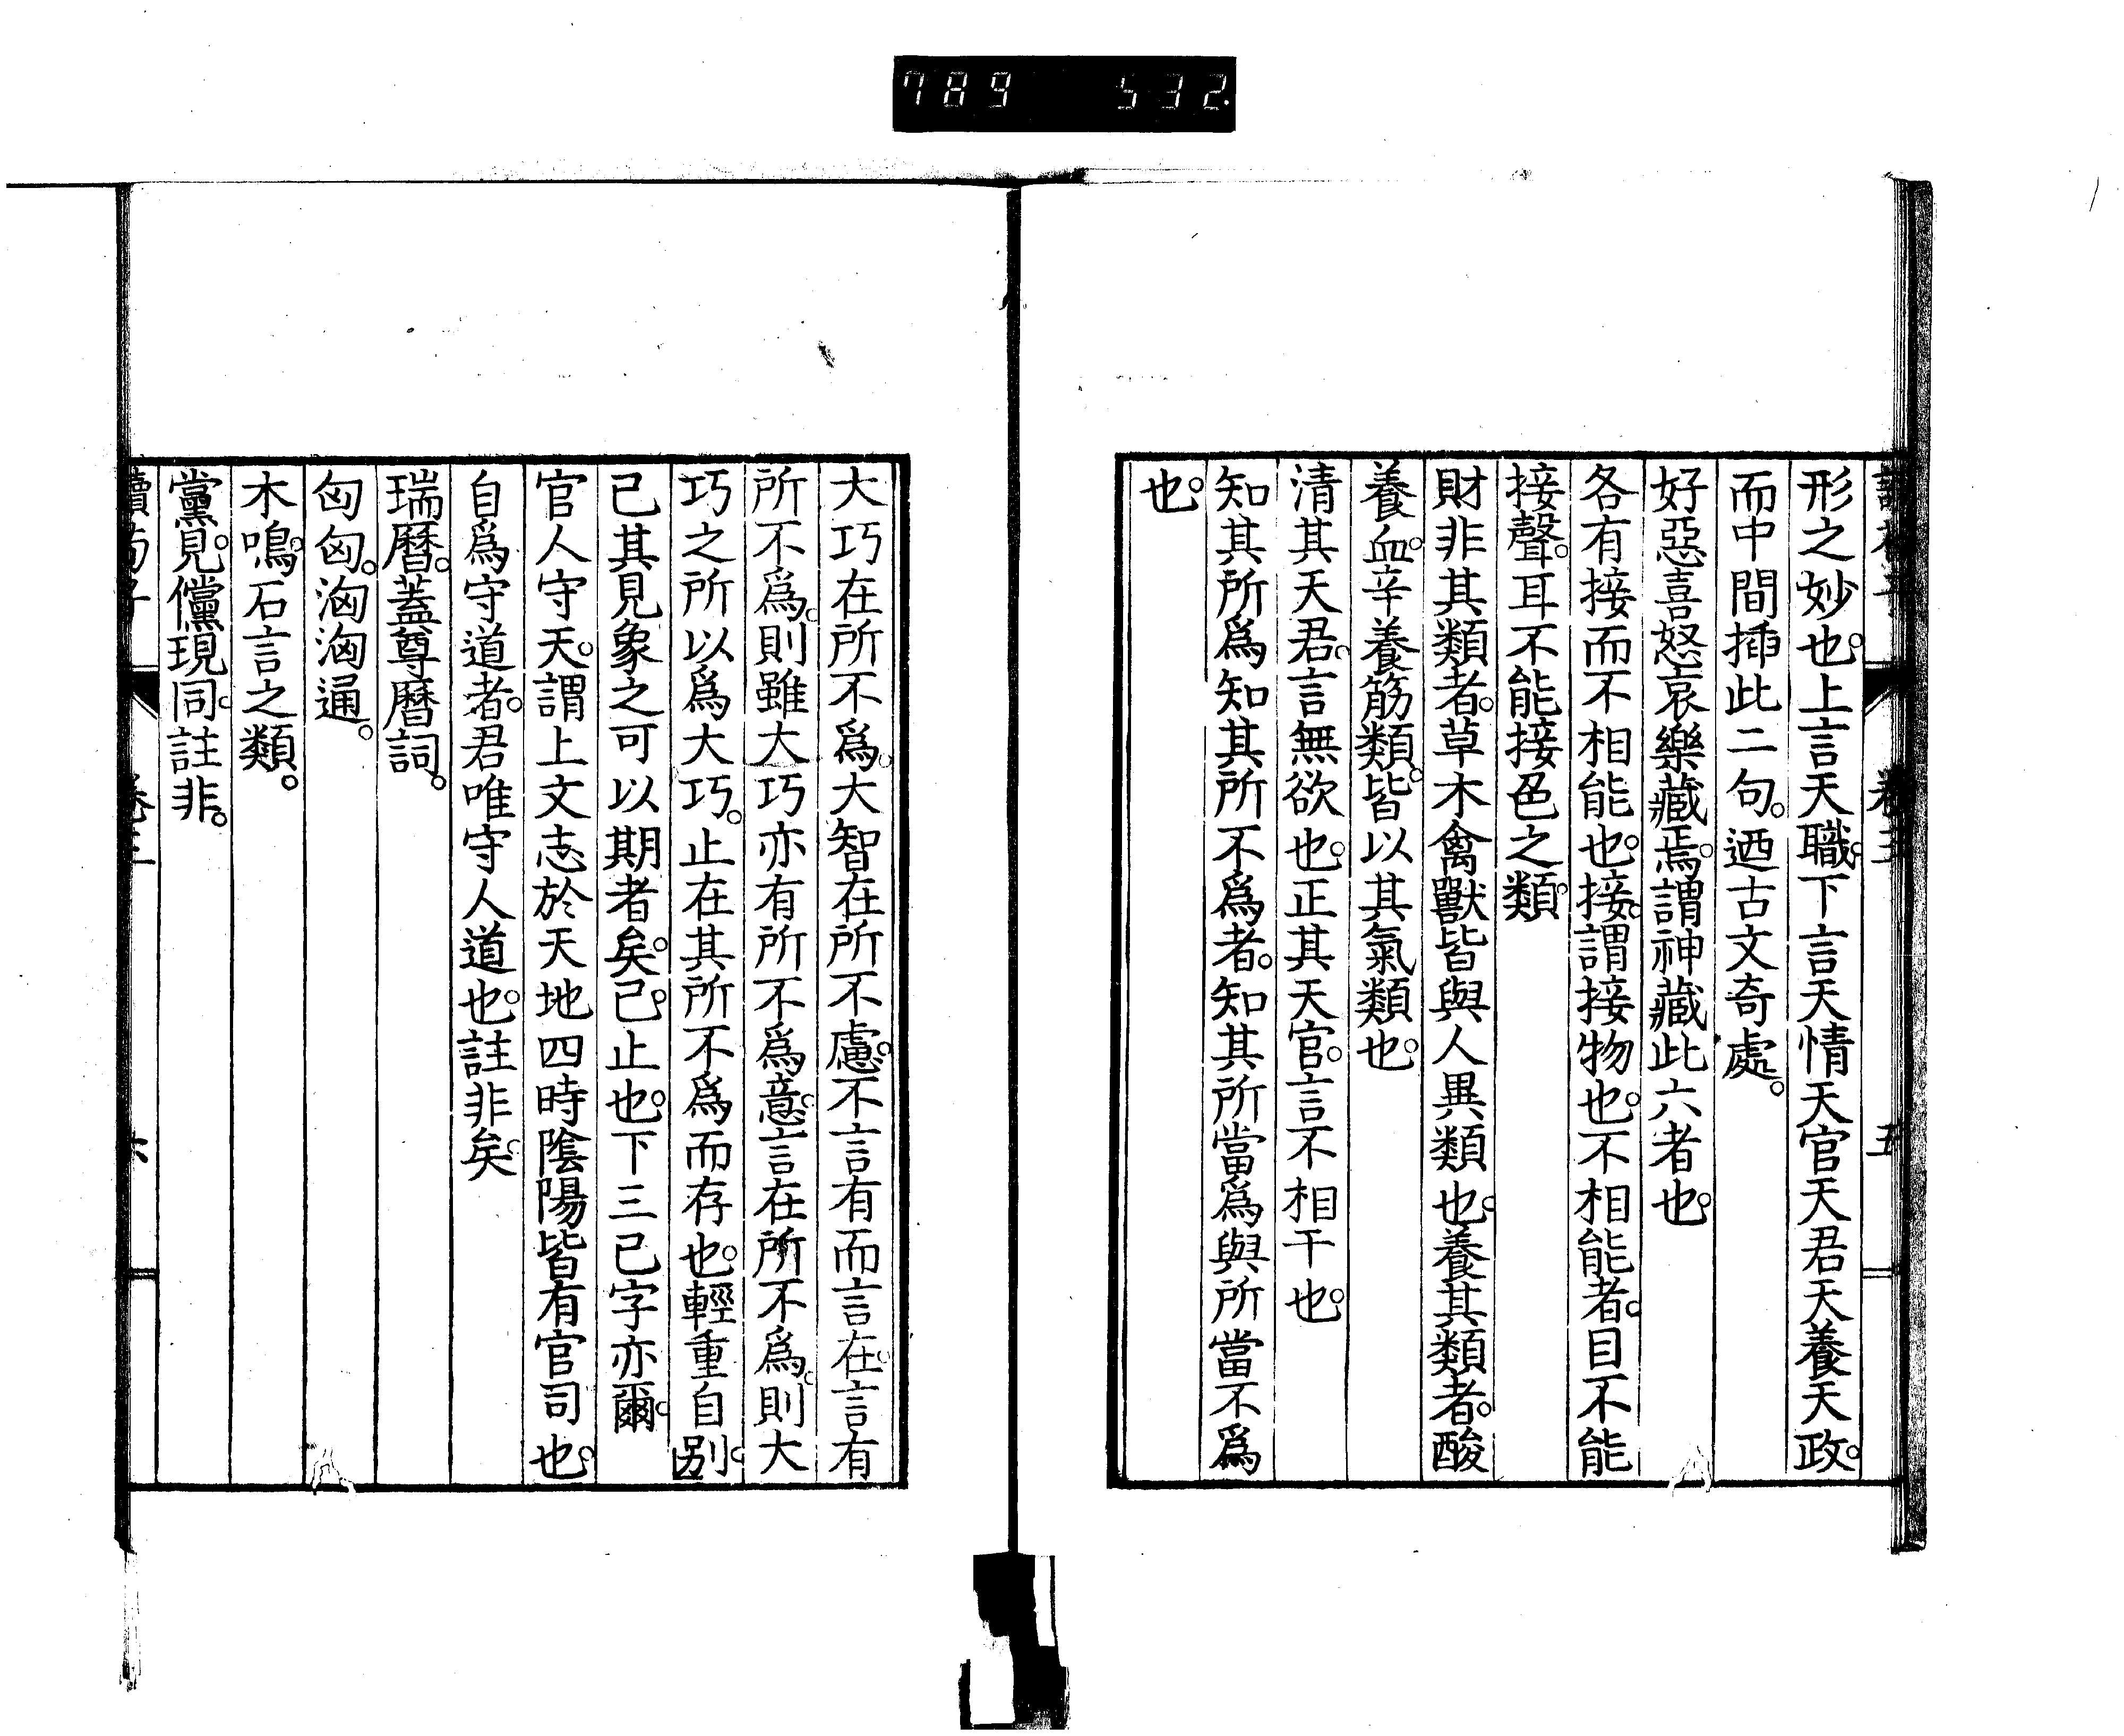 789 532
形之妙也。上言天職。下言天情天官天君天養天政。
而中間插此二句。迺古文奇處。
好惡喜怒哀樂藏焉。謂神藏此六者也。
各有接而不相能也。接。謂接物也。不相能者。目不能
接聲。耳不能接色之類。
財非其類者。草木禽獸皆與人異類也。養其類者。酸
養血。辛養筋類。皆以其氣類也。
清其天君。言無欲也。正其天官。言不相干也。
知其所爲知其所不爲者。知其所當爲與所當不爲
也。
大巧在所不爲。大智在所不慮。不言有而言在。言有
所不爲。則雖大巧亦有所不爲意。言在所不爲。則大
巧之所以爲大巧。止在其所不爲而存也。輕重自別。
已其見象之可以期者矣。已。止也。下三已字亦爾。
官人守天。謂上文志於天地四時陰陽皆有官司也。
自爲守道者。君唯守人道也。註非矣。
瑞曆。蓋尊曆詞。
匈匈。洶洶通。
木鳴。石言之類。
黨見。儻現同。註非。
讀荀子 卷三 六